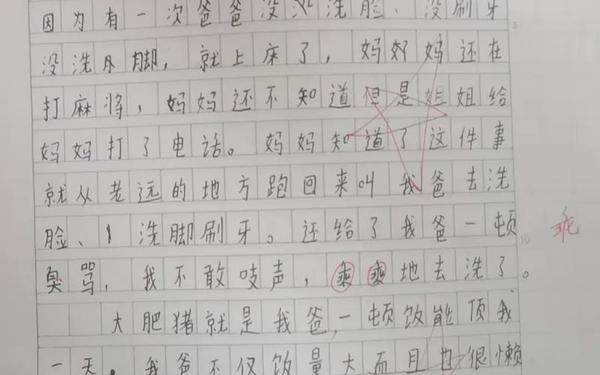 因为有一次爸爸没 洗脸、没刷牙
没洗 脚，就上床了，妈妈妈还在
打麻将，妈妈还不知道但是姐姐给
妈妈打了电话。妈妈知道了这件事
就从老远的地方跑回来叫我爸去洗
脸、洗脚刷牙。还给了我爸一顿
臭骂，我不敢吱声，乘乘地去洗了。
乖
大肥猪就是我爸，一顿饭能顶我
一天。我爸不仅饭量大而且也很懒